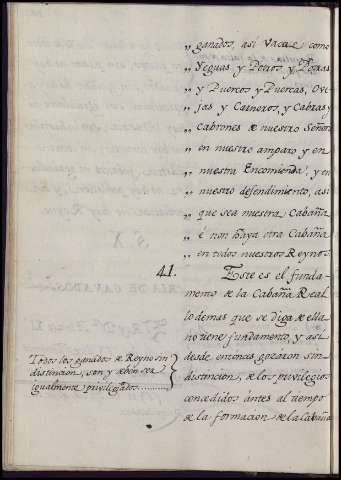 „ ganados, asi Vacas como
„ Yeguas, y Potros, y Potras
„ y Puercos y Puercas, Ove
„ jas y Carneros, y Cabras y
„ Cabrones de nuestro Señor
„ en nuestro amparo y en
„ nuestra Encomienda, y en
„ nuestro defendimiento, asi
„ que sea nuestra Cabaña
„ é non haya otra Cabaña
„ en todos nuestros Reynos.
41. Este es el funda-
mento de la Cabaña Real
lo demas que se diga de ella
no tiene fundamento, y asi
desde entonces gozaron sin
distincion, de los privilegios
concedidos ántes al tiempo
de la formacion de la Cabaña
Todos los ganados de Reyno sin
distincion, son y deben ser
igualmente privilegiados